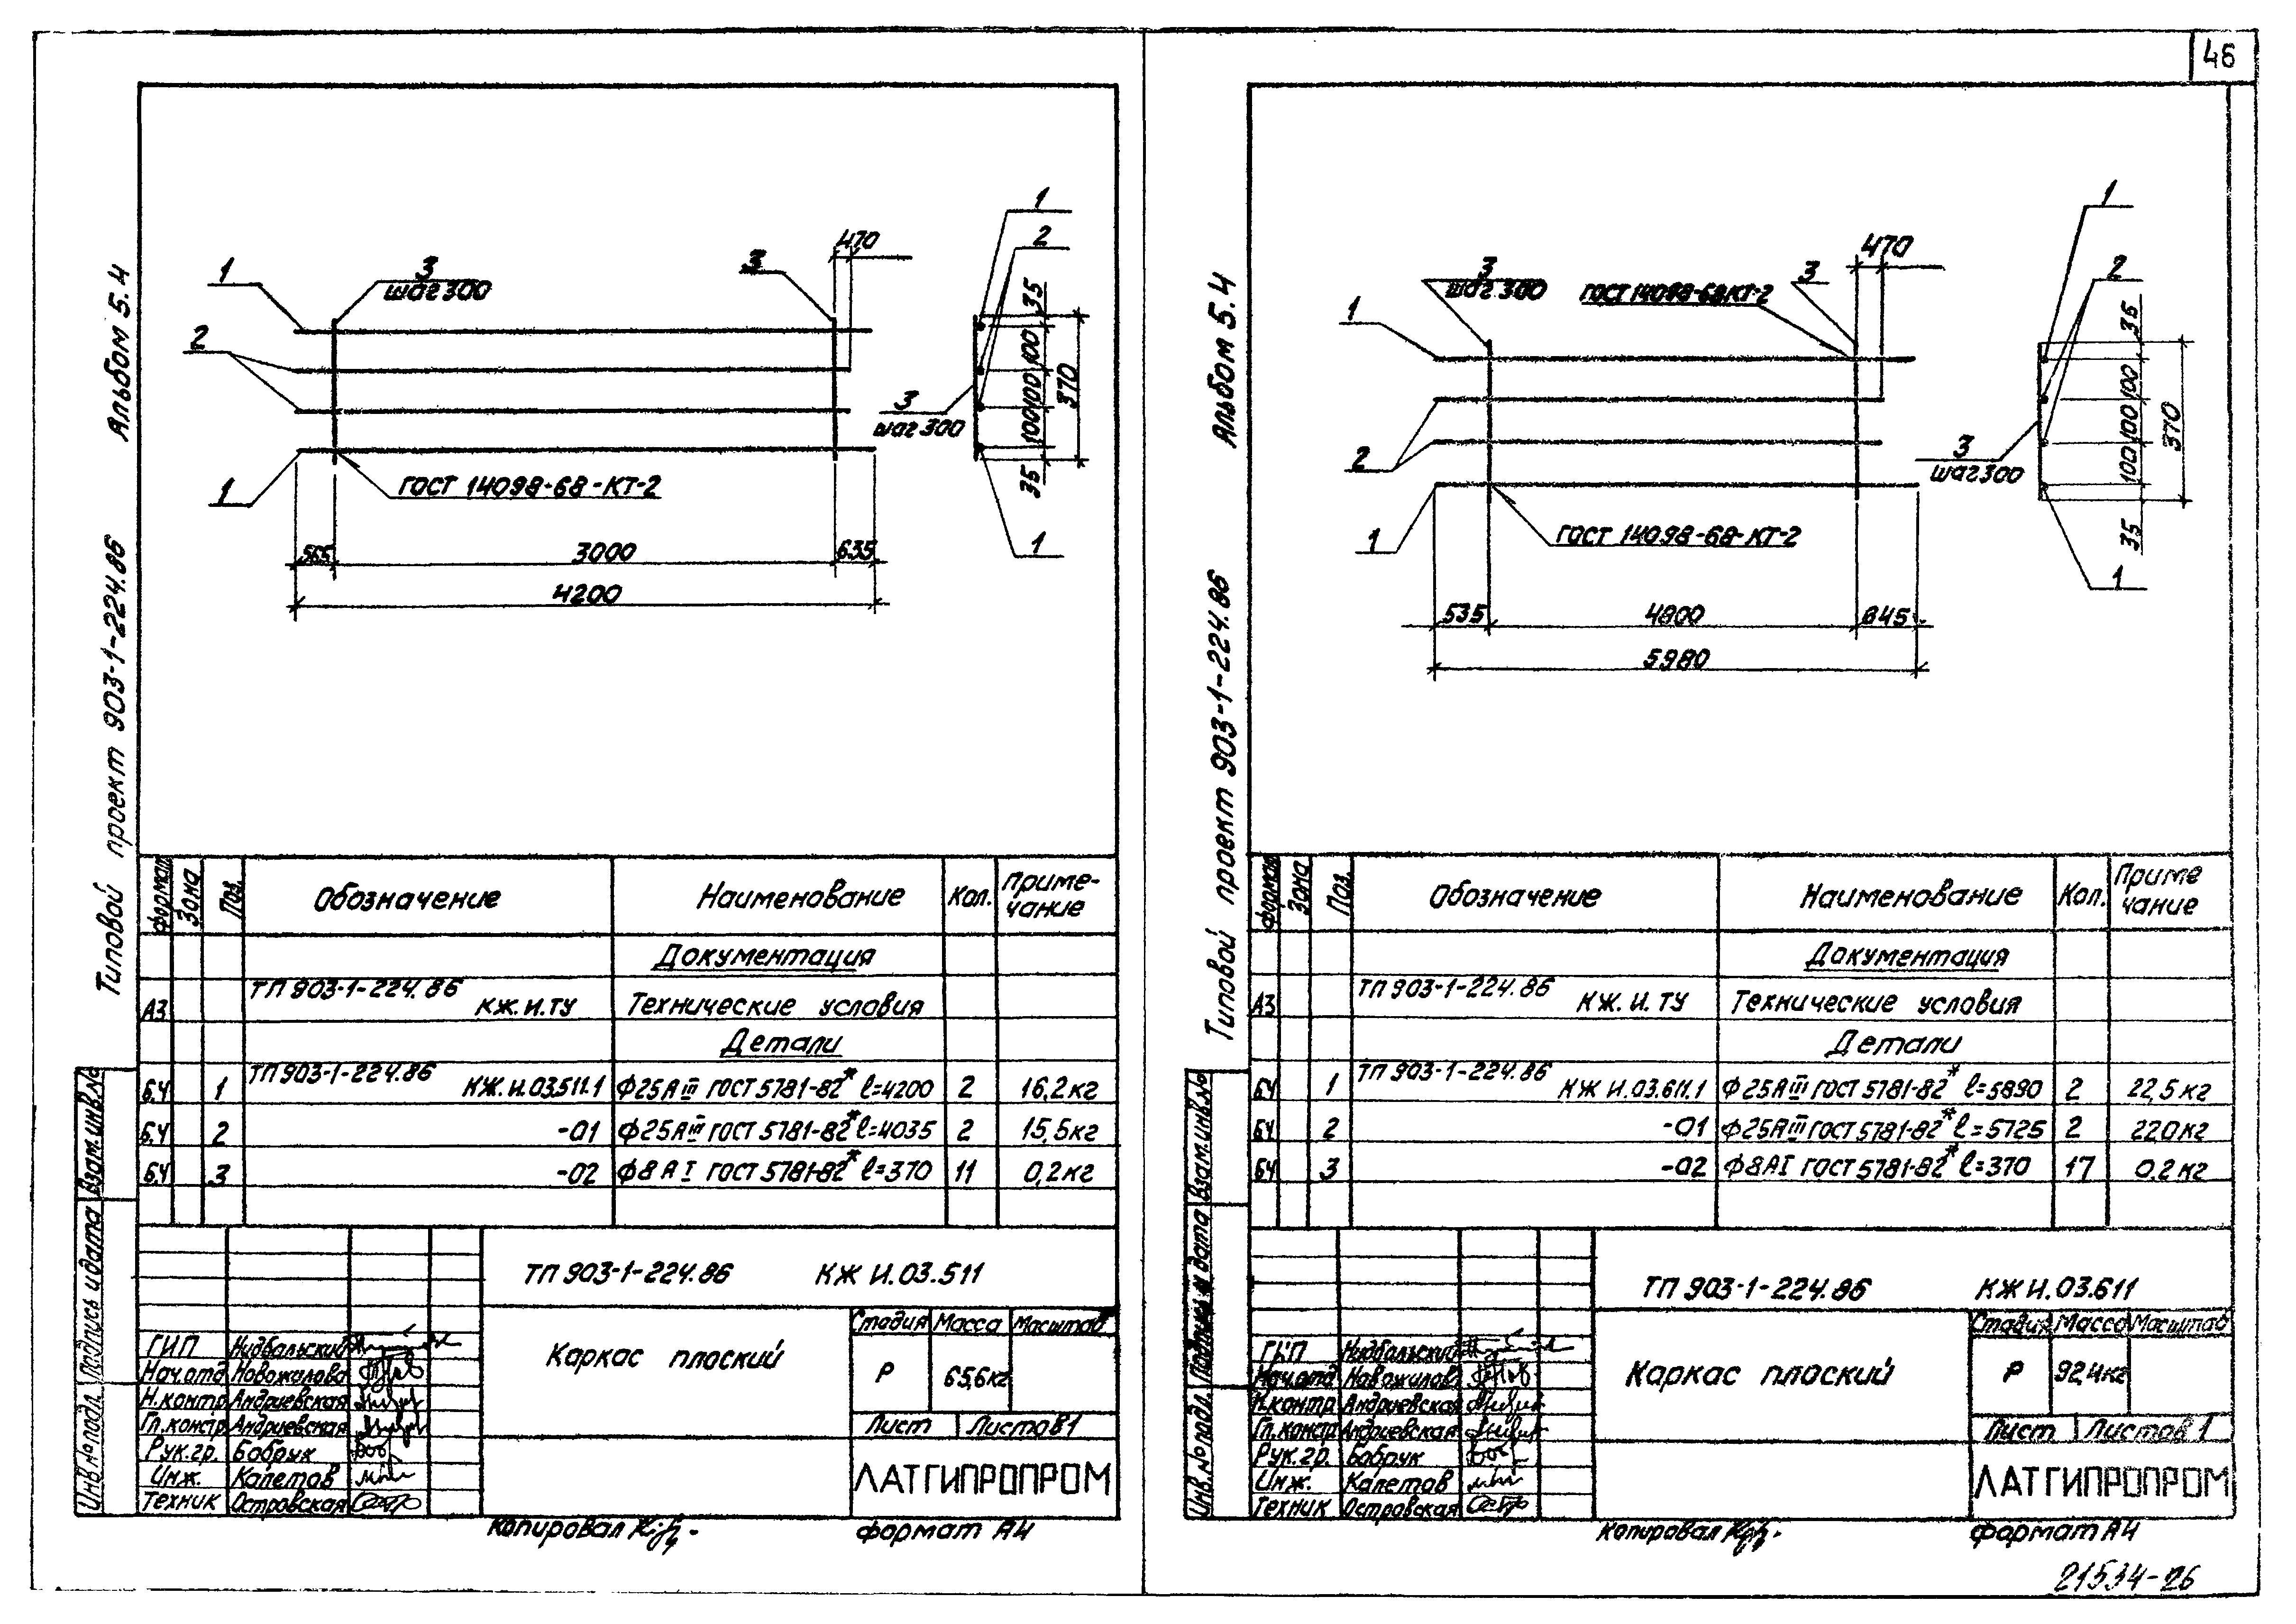 46
Альбом 5.4
Типовой проект 903-1-224.86
1
3
шаг 300
3
470
2
1
ГОСТ 14098-68-КТ-2
565
3000
635
4200
1
2
3
шаг 300
1
35
100
100
100
35
370
Формат
Зона
Поз.
Обозначение
Наименование
Кол.
Приме-
чание
Документация
А3
ТП 903-1-224.86
КЖ.И.ТУ
Технические условия
Детали
БЧ 1 ТП 903-1-224.86 КЖ.И.03.511.1 Ф25АIII ГОСТ 5781-82* ℓ=4200 2 16,2кг
Б.Ч 2 -01 Ф25АIII ГОСТ 5781-82* ℓ=4035 2 15,5кг
Б.Ч 3 -02 Ф8АI ГОСТ 5781-82* ℓ=370 11 0,2кг
Взам.инв.№
Подпись и дата
Инв.№ подл.
ТП 903-1-224.86 КЖ И.03.511
Каркас плоский
Стадия Масса Масштаб
Р 65,6кг
Лист Листов 1
ЛАТГИПРОПРОМ
ГИП Нидбальский
Нач.отд Новожилова
Н.контр Андриевская
Гл.констр Андриевская
Рук.гр. Бобрук
Инж. Капетов
Техник Островская
Копировал
формат А4
Альбом 5.4
Типовой проект 903-1-224.86
3
шаг 300
ГОСТ 14098-68КТ-2
3
470
1
2
1
ГОСТ 14098-68-КТ-2
535
4800
645
5980
1
2
3
шаг 300
1
35
100
100
100
35
370
Формат
Зона
Поз.
Обозначение
Наименование
Кол.
Приме
чание
Документация
А3
ТП 903-1-224.86
КЖ.И.ТУ
Технические условия
Детали
БЧ 1 ТП 903-1-224.86 КЖ И.03.611.1 Ф25АIII ГОСТ 5781-82* ℓ=5890 2 22,5кг
БЧ 2 -01 Ф25АIII ГОСТ 5781-82* ℓ=5725 2 22,0кг
БЧ 3 -02 Ф8АI ГОСТ 5781-82* ℓ=370 17 0.2кг
Взам.инв.№
Подпись и дата
Инв.№ подл.
ТП 903-1-224.86 КЖ И.03.611
Каркас плоский
Стадия Масса Масштаб
Р 92,4кг
Лист Листов 1
ЛАТГИПРОПРОМ
ГИП Нидбальский
Нач.отд Новожилова
Н.контр Андриевская
Гл.констр Андриевская
Рук.гр. Бобрук
Инж. Капетов
Техник Островская
Копировал
формат А4
21534-26